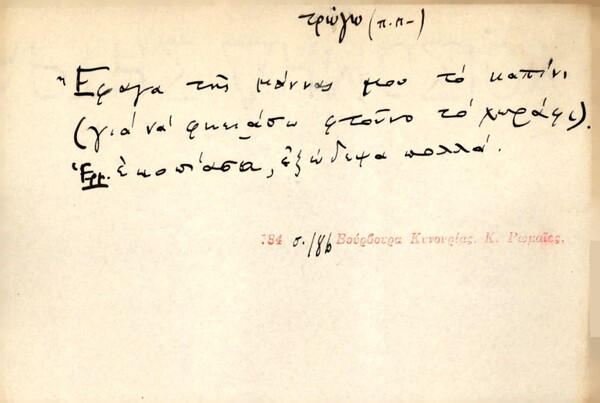 τρώγω (π.π-)
"Εφαγα τῆς μάννας μου τό καπίνι
(γιά νά φκειάσω φτοῦνο τό χωράφι).
Ἑρμ. ἐκοπίασα, ἐξώδεψα πολλά.
784 σ./86 Βούρβουρα Κυνουρίας. Κ. Ρωμαῖος.